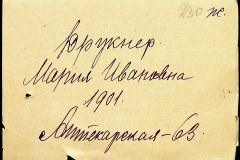 ж.
Брукнер.
Мария Ивановна
1901.
Аптекарская-63